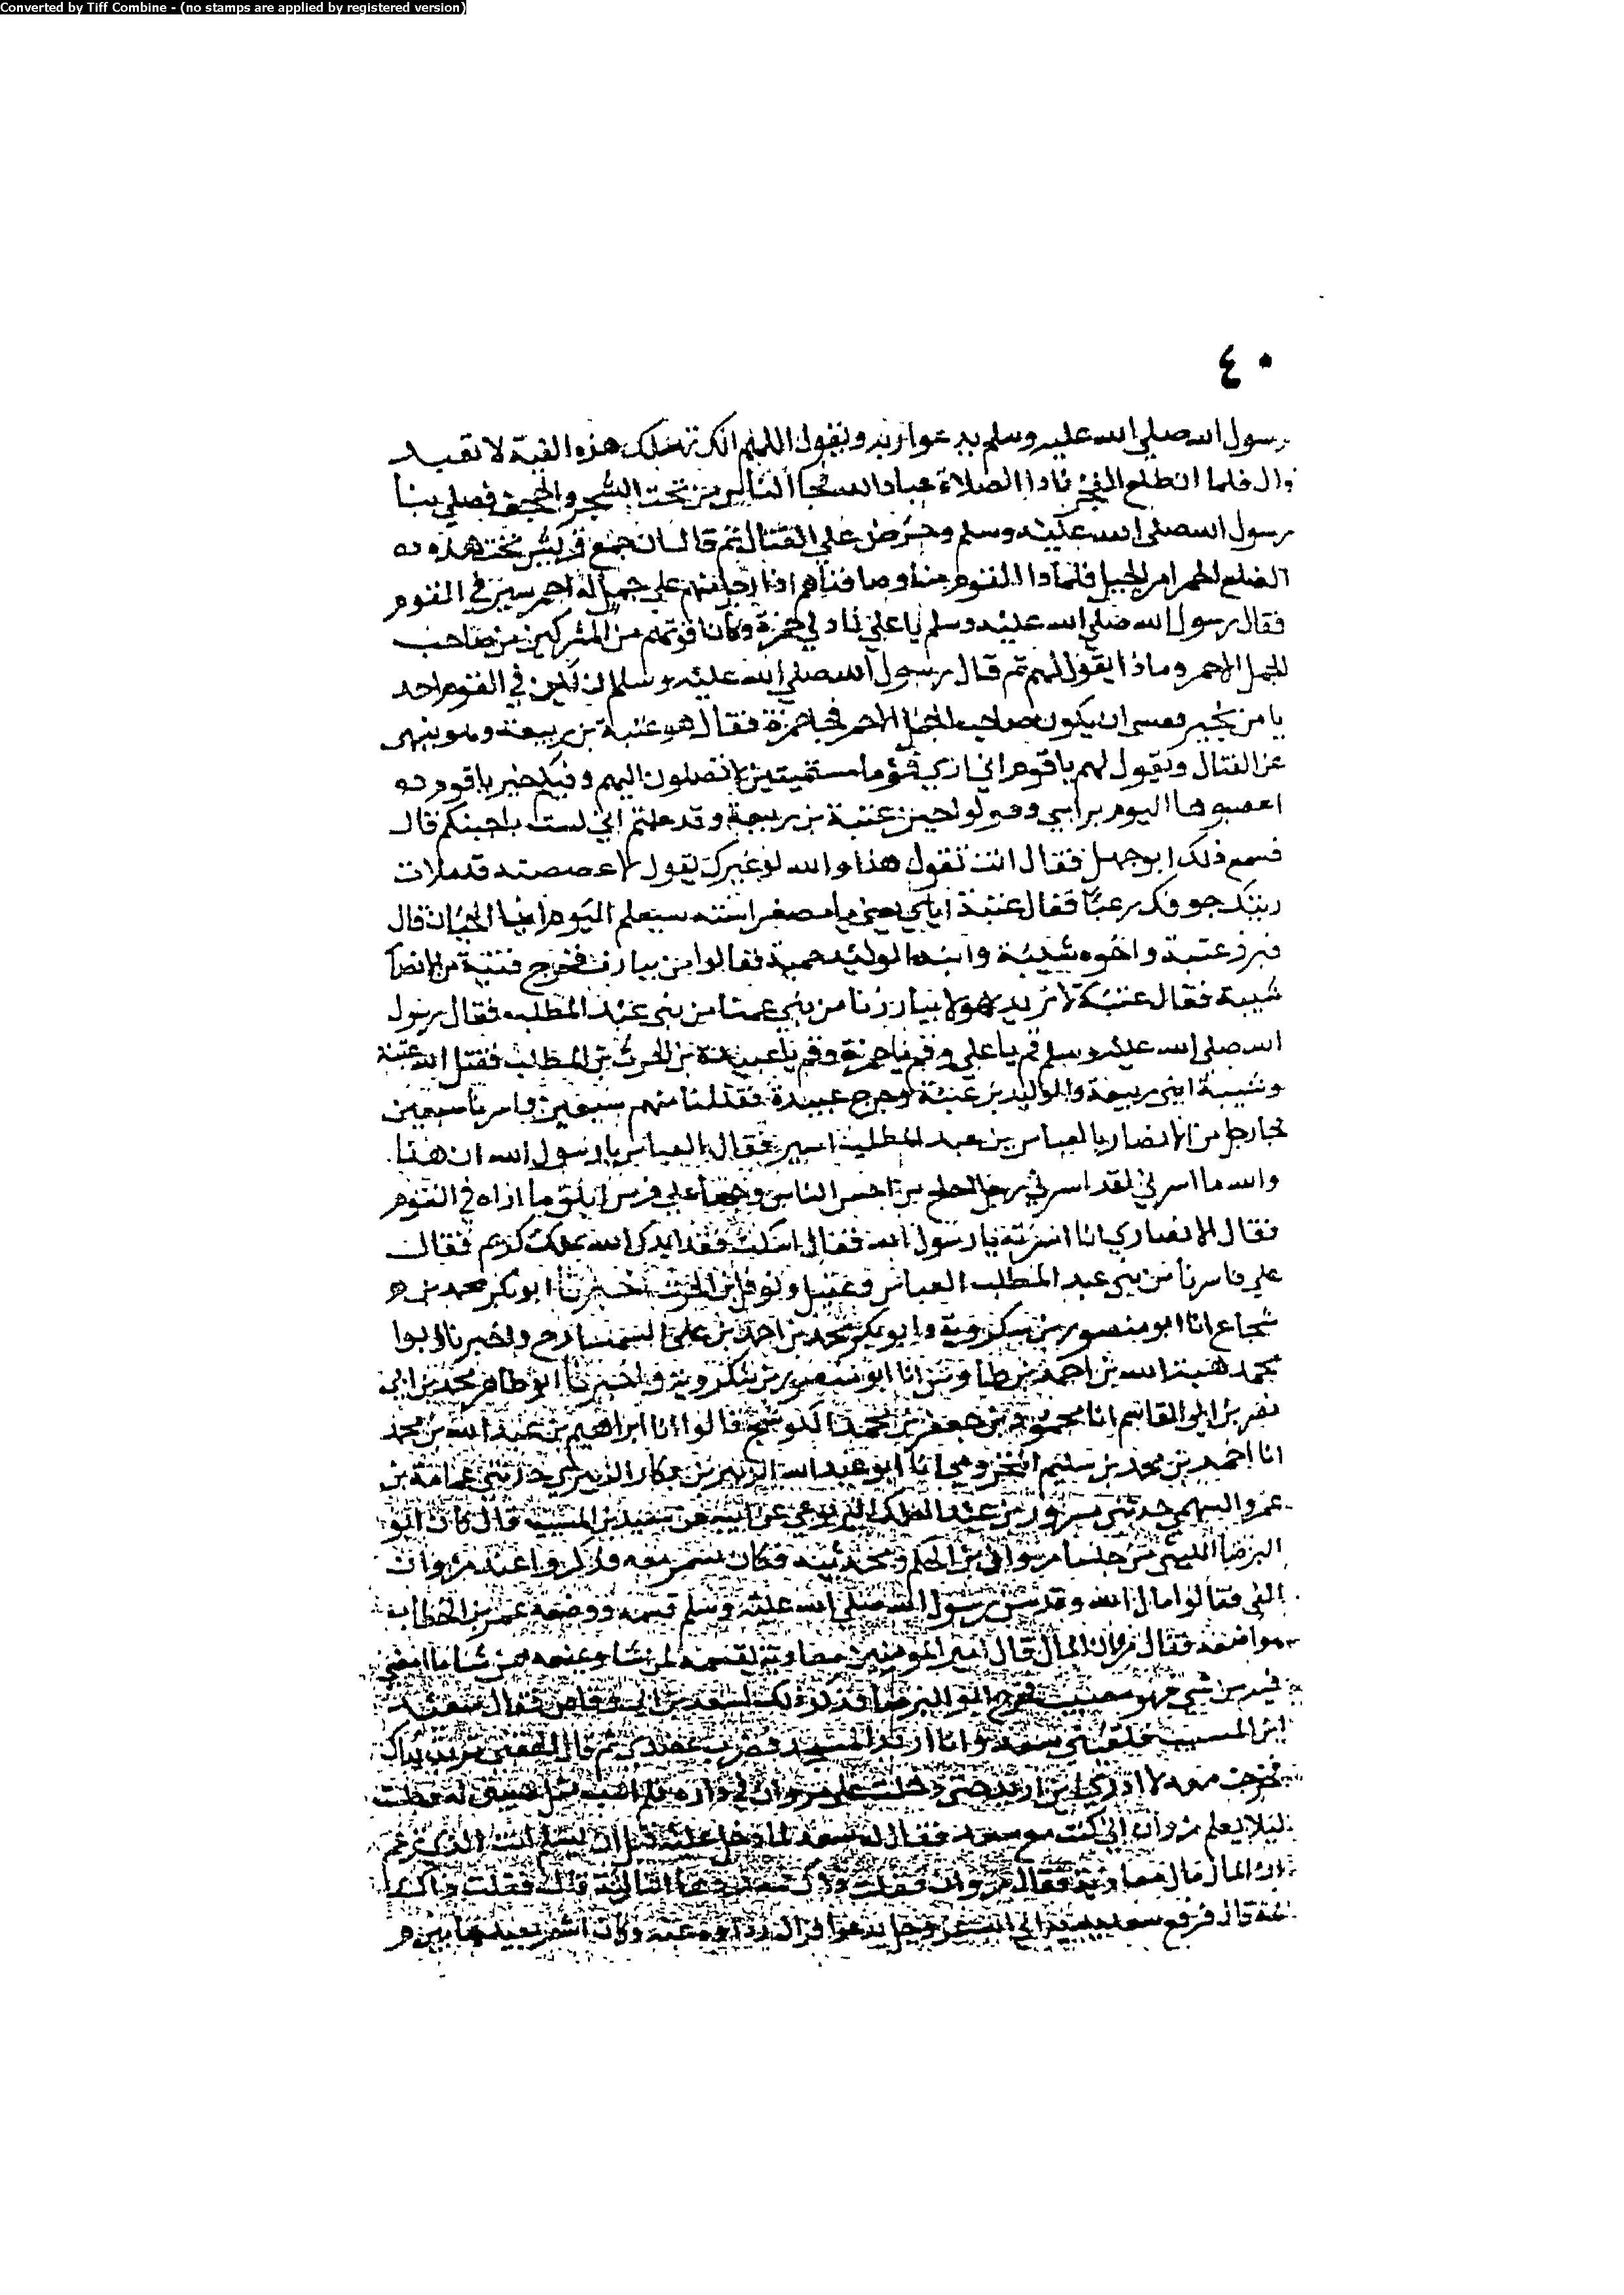 Converted by Tiff Combine - (no stamps are applied by registered version)
٤٠
رسول الله صلى الله عليه وسلم يدعوا ربه ويقول اللهم انك تهلك هذه الفية لا تعبد
قال فلما ان طلع الفجر نادا الصلاة عباد الله فجا الناس من تحت الشجر والحجف فصلى بنا
رسول الله صلى الله عليه وسلم وحرض على القتال ثم قال ان جمع قريش تحت هذه
الضلع الحمرا من الجبل فلما دنا القوم منا وصافناهم اذا رجل منهم على جمل له احمر يسير في القوم
فقال رسول الله صلى الله عليه وسلم يا علي ناد لي حمزة وكان اقربهم من المشركين من صاحب
الجمل الاحمر وماذا يقول لهم ثم قال رسول الله صلى الله عليه وسلم ان يكن في القوم احد
يامر بخير فعسى ان يكون صاحب الجمل الاحمر فجا حمزة فقال هو عتبة بن ربيعة وهو ينهى
عن القتال ويقول لهم يا قوم اني ارى قوما مستميتين لا تصلون اليهم وفيكم خير يا قوم
اعصبوها اليوم براسي وقولوا جبن عتبة بن ربيعة وقد علمتم اني لست باجبنكم قال
فسمع ذلك ابو جهل فقال انت تقول هذا والله لو غيرك يقول لاعضضته قد ملات
ريتك جوفك رعبا فقال عتبة اياي يعني يا مصفر استه سيعلم اليوم اينا الجبان قال
فبرز عتبة واخوه شيبة وابنه الوليد حمية فقالوا من يبارز فخرج فتية من الانصار
شيبة فقال عتبة لا نريد هولا يبارزنا من بني عمنا من بني عبد المطلب فقال رسول
الله صلى الله عليه وسلم قم يا علي وقم يا حمزة وقم يا عبيدة بن الحرث بن المطلب فقتل الله عتبة
وشيبة ابني ربيعة والوليد بن عتبة وجرح عبيدة فقتلنا منهم سبعين واسرنا سبعين
فجا رجل من الانصار بالعباس بن عبد المطلب اسيرا فقال العباس يا رسول الله ان هذا
والله ما اسرني لقد اسرني رجل اجلح من احسن الناس وجها على فرس ابلق ما اراه في القوم
فقال الانصاري انا اسرته يا رسول الله فقال اسكت فقد ايدك الله بملك كريم فقال
علي فاسرنا من بني عبد المطلب العباس وعقيل ونوفل بن الحرث اخبرنا ابو بكر محمد بن
شجاع انا ابو منصور بن شكروية وابو بكر محمد بن احمد بن علي السمسار ح واخبرنا ابوا
محمد هبة الله بن احمد بن طاوس انا ابو منصور بن شكروية واخبرنا ابو طاهر محمد بن ابي
نصر بن ابي القاسم انا محمود بن جعفر بن محمد الكوسج قالوا انا ابراهيم بن عبد الله بن محمد
انا احمد بن محمد بن سليم المخزومي انا ابو عبد الله الزبير بن بكار الزبيري حدثني عمامة بن
عمرو السهمي حدثني مسور بن عبد الملك اليربوعي عن ابيه عن سعيد بن المسيب قال كان ابن
البرصا الليثي من جلسا مروان بن الحكم ومحدثيه فكان يسمر معه فذكروا عند مروان
الفي فقالوا مال الله وقد بين رسول الله صلى الله عليه وسلم قسمه ووضعه عمر بن الخطاب
مواضعه فقال مروان المال مال امير المومنين معاوية يقسمه لمن شا ويمنعه ممن شا ما امضى
فيه من شي فهو مصيب فخرج ابن البرصا فذكر ذلك لسعد بن ابي وقاص فقال سعيد
ابن المسيب فلقيني سعد وانا اريد المسجد فضرب عضدي ثم قال الحقني تربت يداك
فخرجت معه لا ادري اين اريد حتى دخلت على مروان في داره فلم اهب شيا هيبتي له وجلست
ليلا يعلم مروان اني كنت مع سعد فقال له سعد لما دخل عليه قبل ان يسلم انت الذي تزعم
ان المال مال معاوية فقال مروان
قال فرفع سعد يديه الى الله عز وجل يدعوا